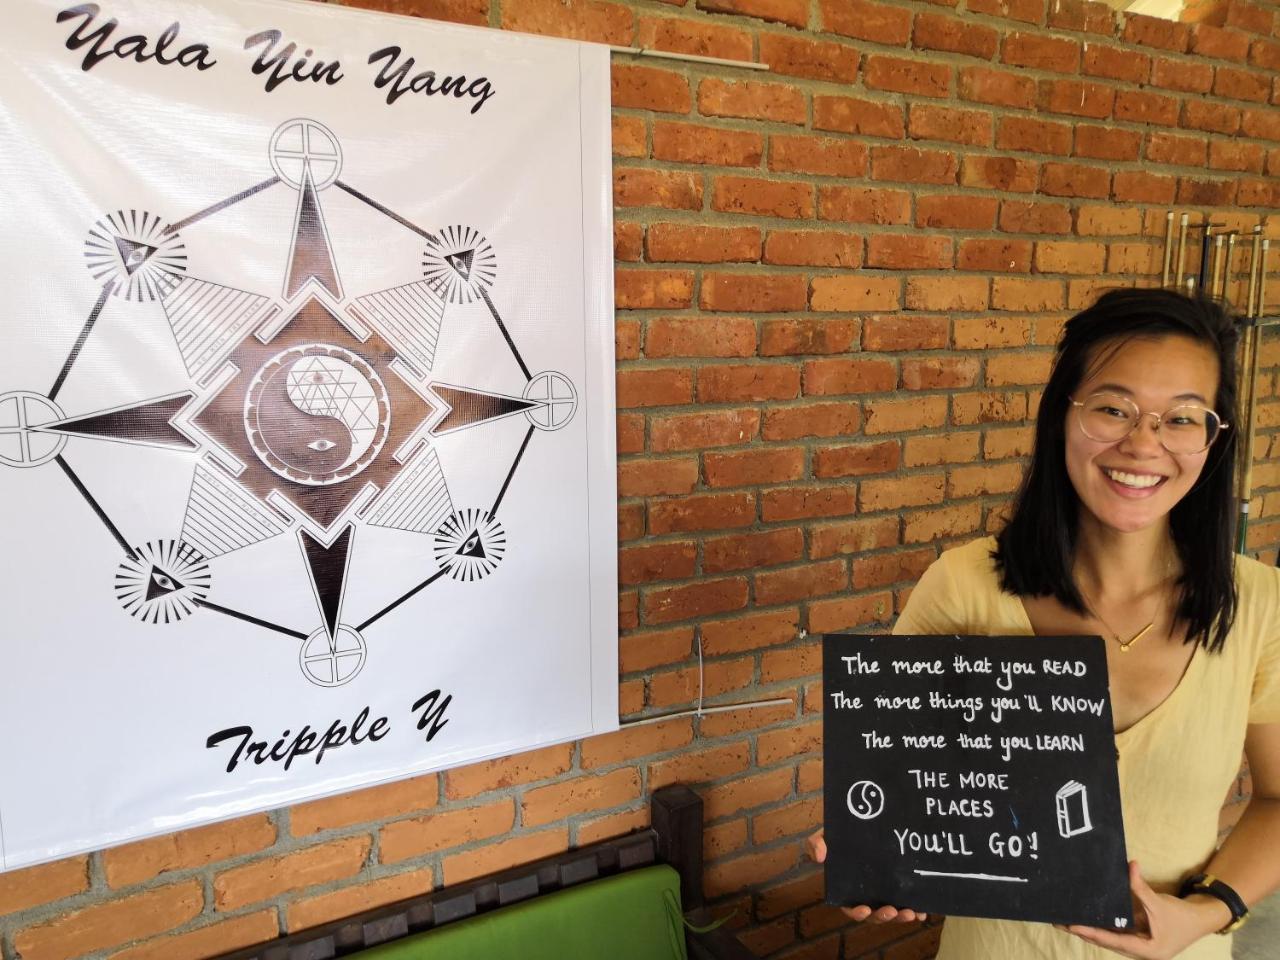 Yala Yin Yang
Tripple Y
The more that you READ
The more things you'll KNOW
The more that you LEARN
THE MORE
PLACES
YOU'LL GO!